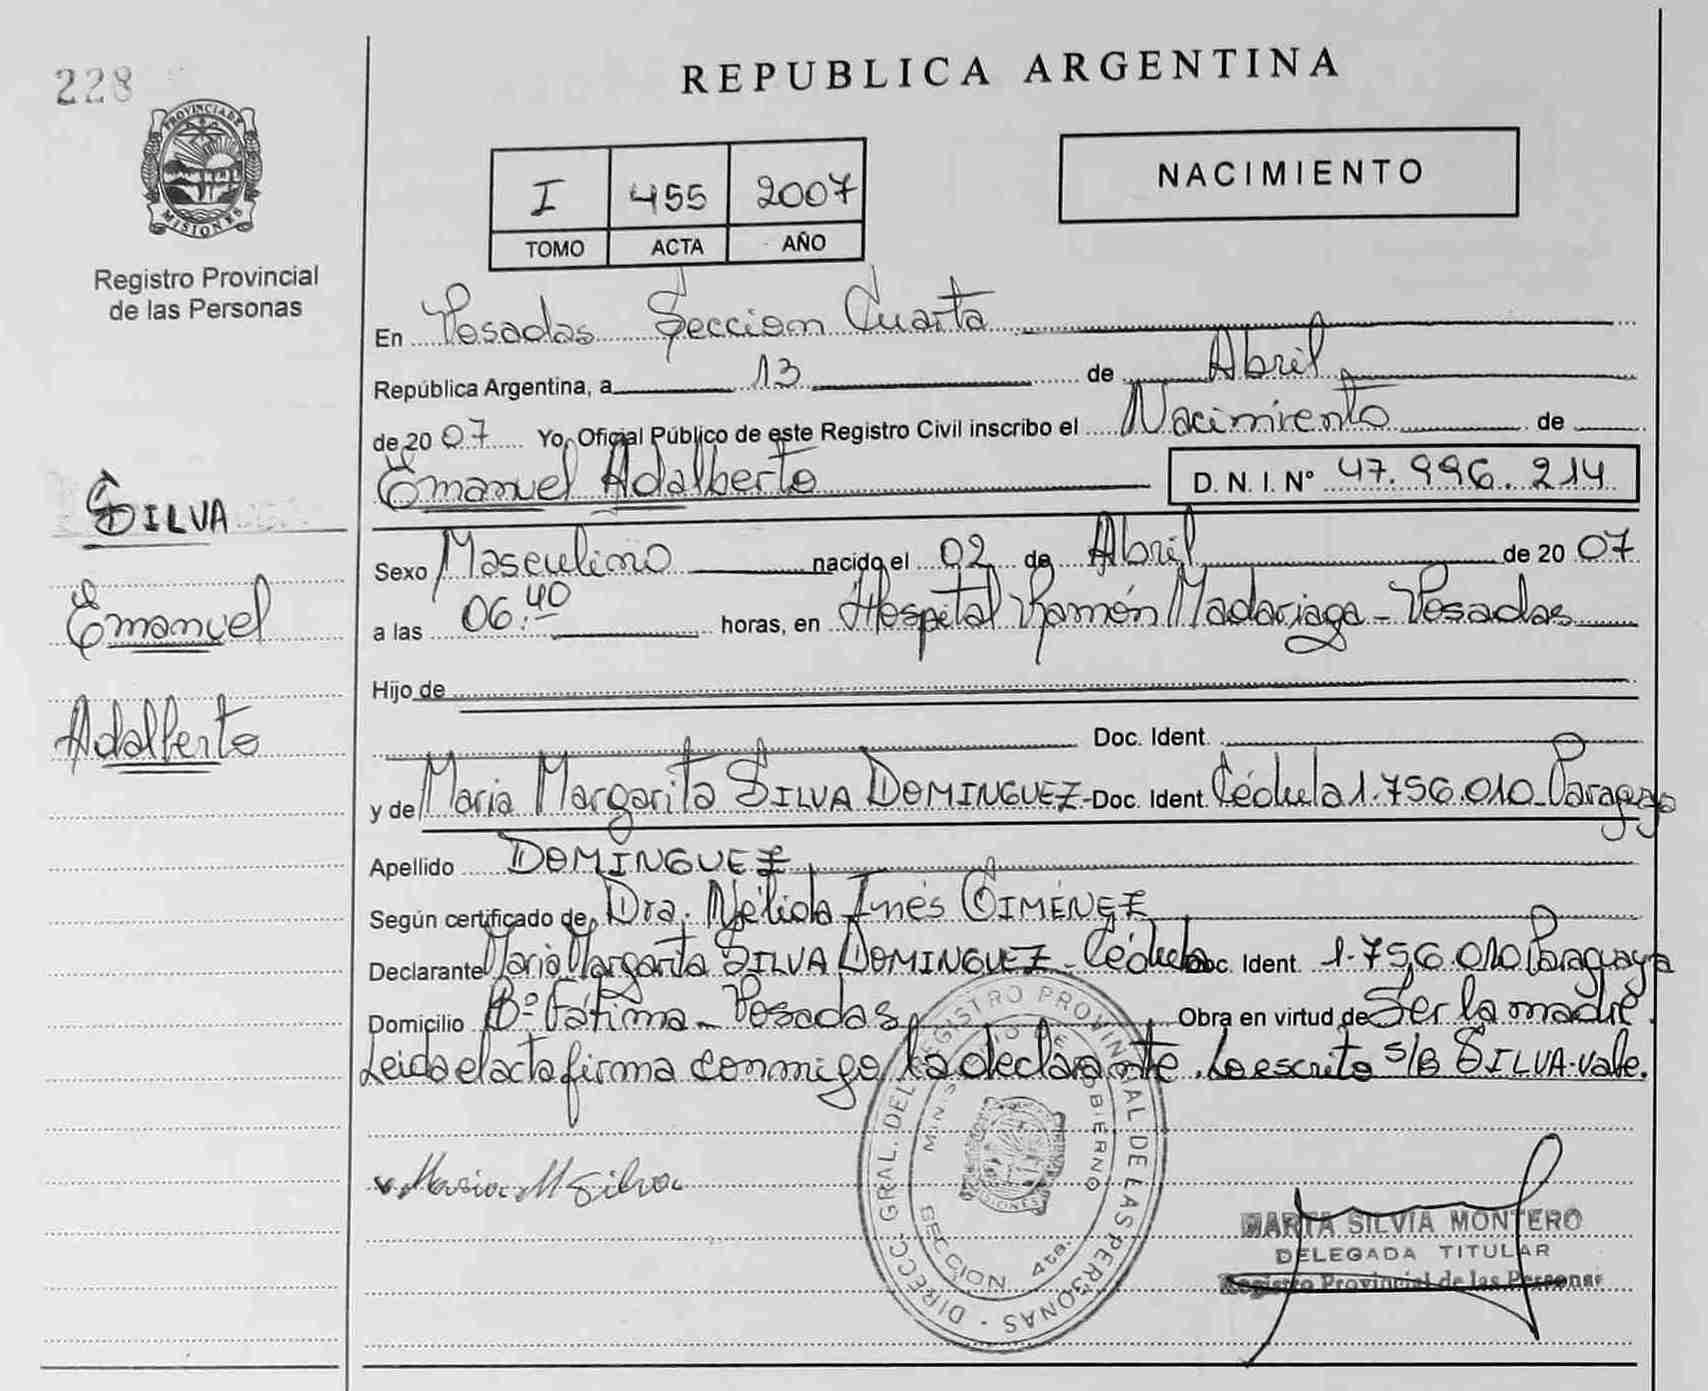 228
PROVINCIA DE
MISIONES
Registro Provincial
de las Personas
SILVA
Emanuel
Adalberto
REPUBLICA ARGENTINA
I 455 2007
TOMO ACTA AÑO
NACIMIENTO
En Posadas Seccion Cuarta
República Argentina, a 13 de Abril
de 2007 Yo, Oficial Público de este Registro Civil inscribo el Nacimiento de
Emanuel Adalberto D. N. I. Nº 47.996.214
Sexo Masculino nacido el 02 de Abril de 2007
a las 06:40 horas, en Hospital Ramón Madariaga - Posadas
Hijo de
Doc. Ident.
y de Maria Margarita SILVA DOMINGUEZ - Doc. Ident. Cédula 1.756.010 Paraguaya
Apellido DOMINGUEZ
Según certificado de Dra. Nélida Inés GIMÉNEZ
Declarante Maria Margarita SILVA DOMINGUEZ - Cédula Doc. Ident. 1.756.010 Paraguaya
Domicilio Bº Fátima - Posadas Obra en virtud de Ser la madre.
Leida el acta firma conmigo la declarante. Lo escrito s/B SILVA - Vale.
Maria M Silva
DIRECC. GRAL. DEL REGISTRO PROVINCIAL DE LAS PERSONAS
MINISTERIO DE GOBIERNO
SECCION 4ta.
MISIONES
MARTA SILVIA MONTERO
DELEGADA TITULAR
Registro Provincial de las Personas